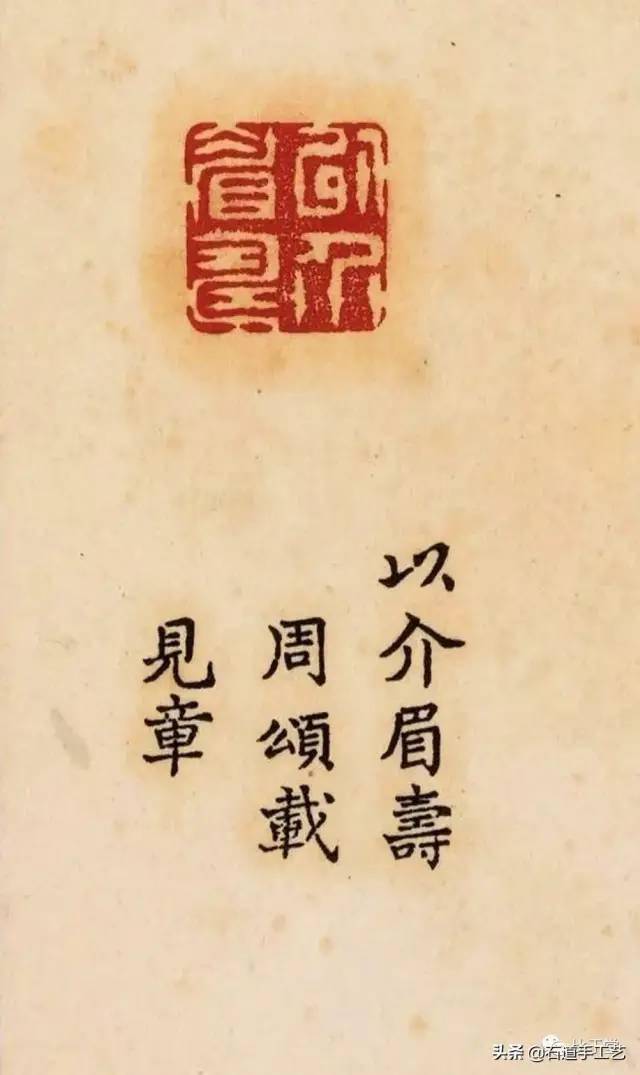 以介眉壽
周頌載
見章
头条 @石道手工艺